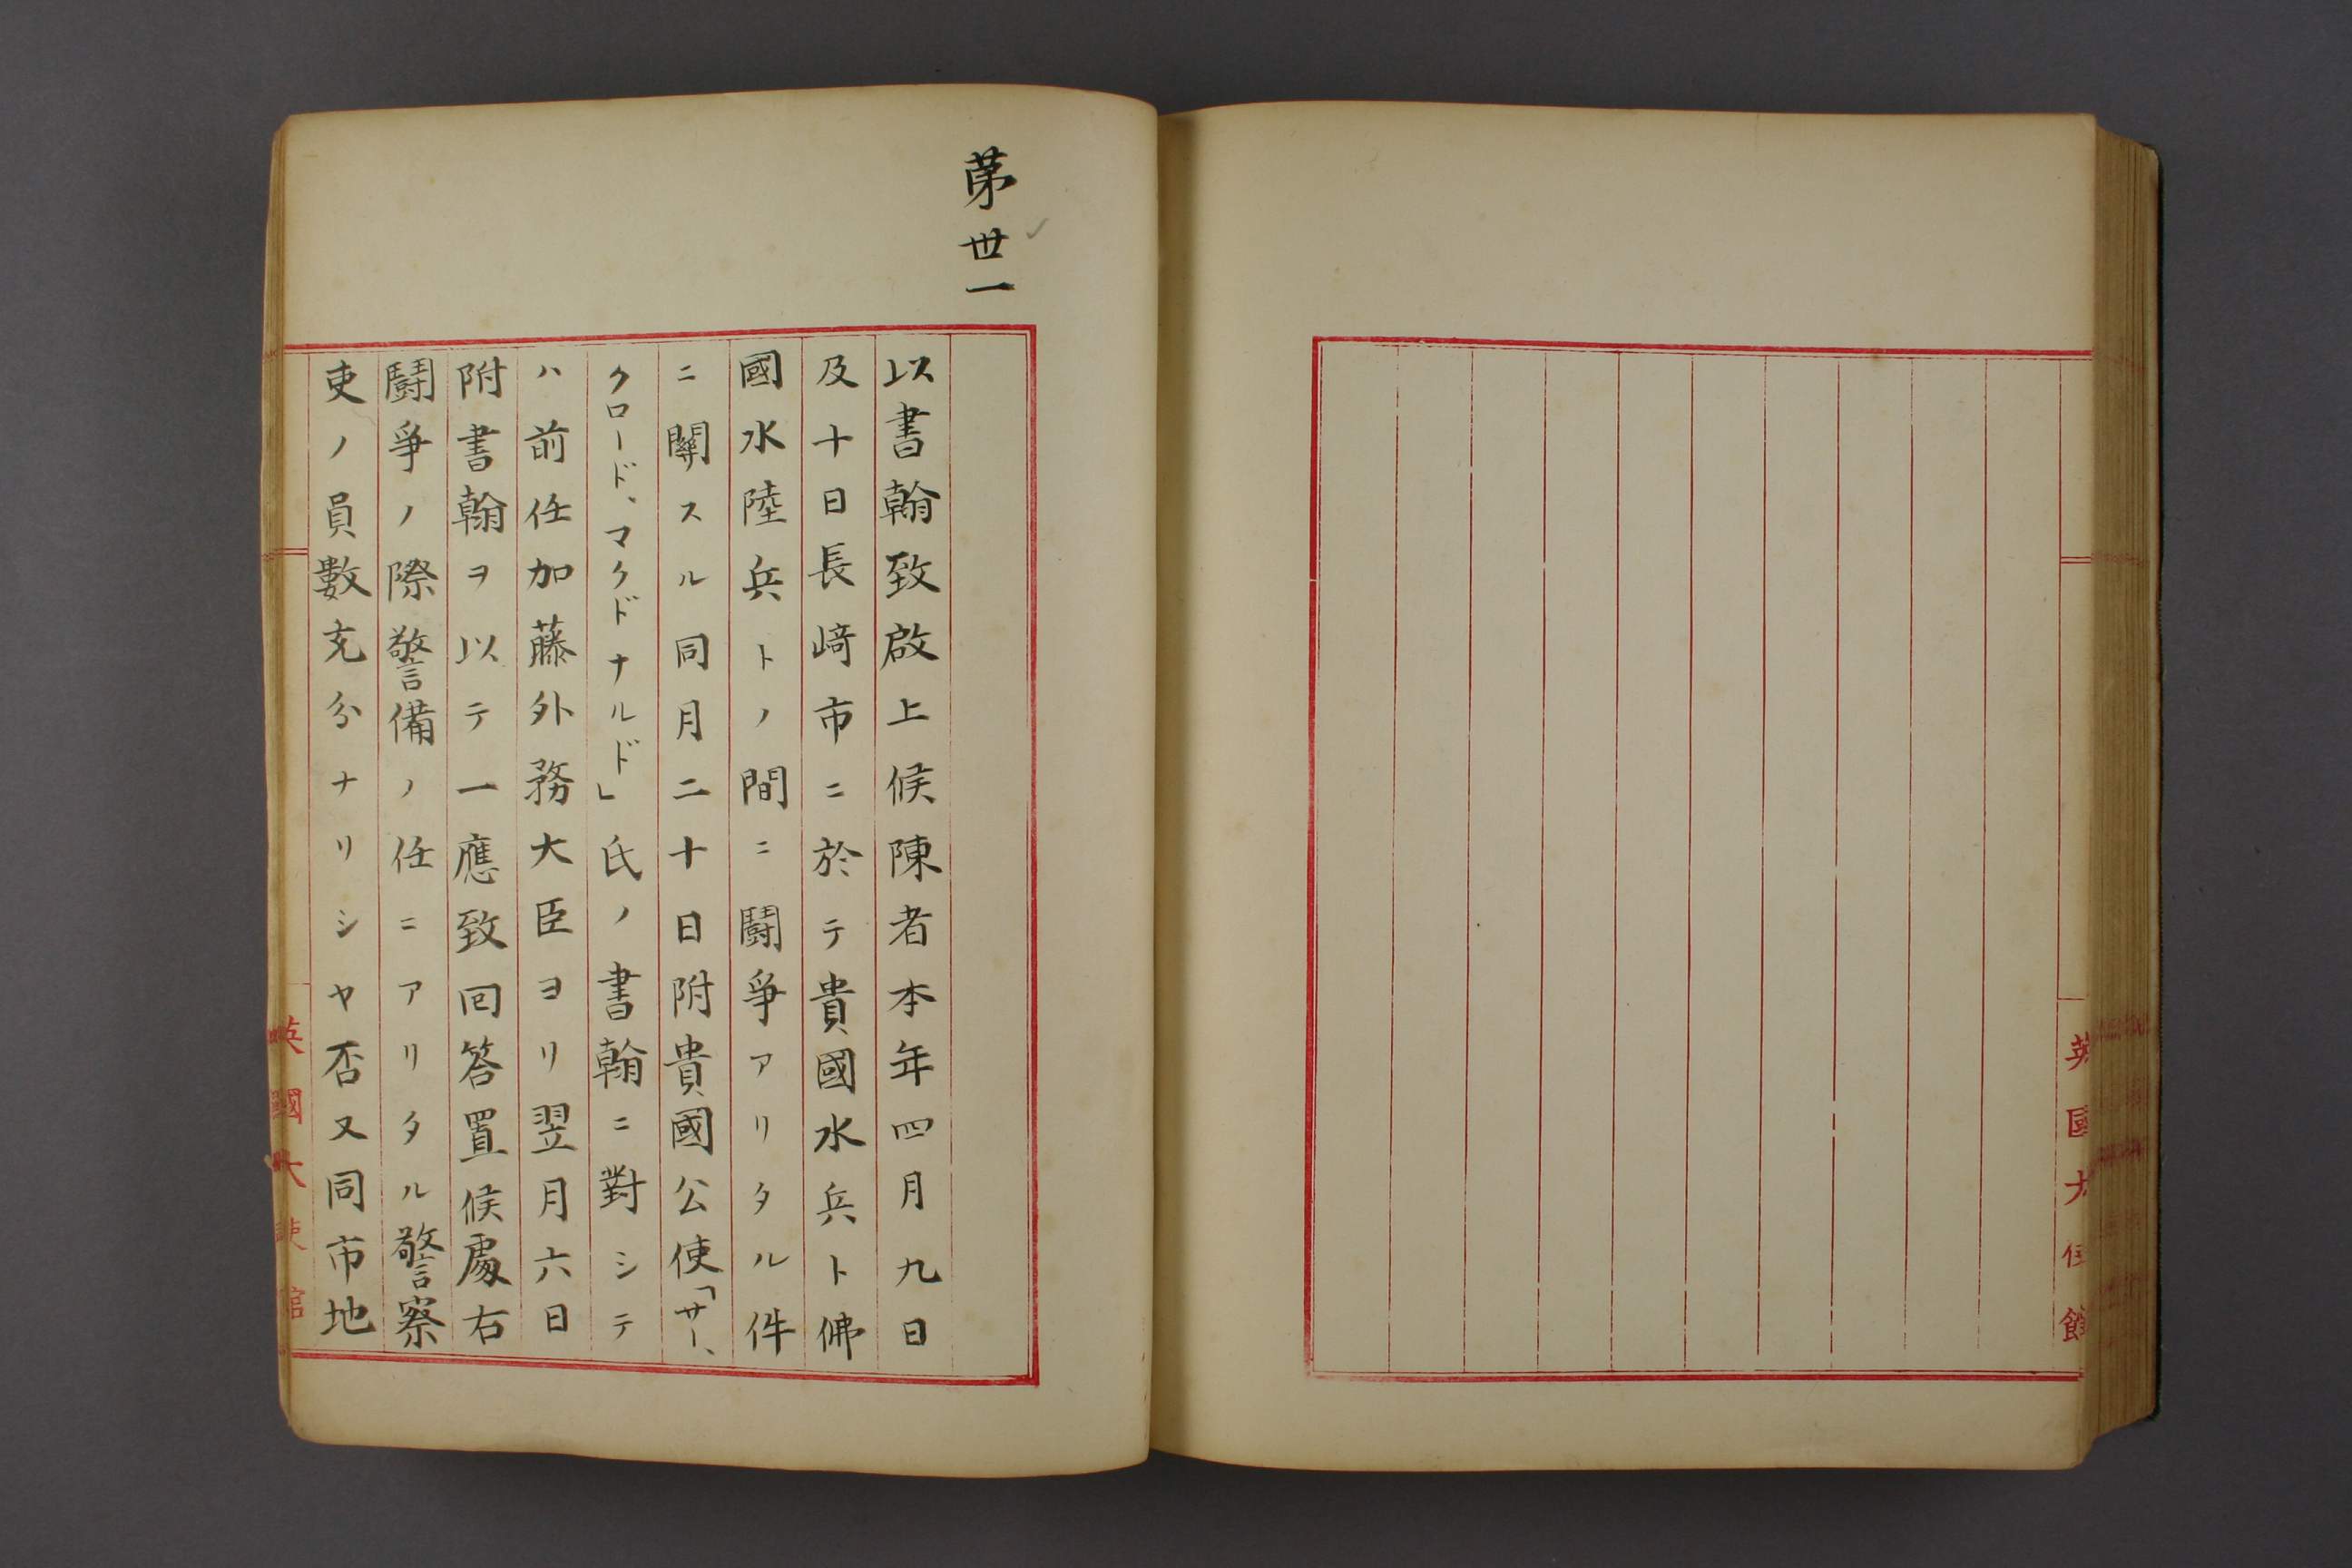 英國大使館
第卅一
以書翰致啟上候陳者本年四月九日
及十日長﨑市ニ於テ貴國水兵ト佛
國水陸兵トノ間ニ鬪爭アリタル件
ニ關スル同月二十日附貴國公使「サー、
クロード、マクドナルド」氏ノ書翰ニ對シテ
ハ前任加藤外務大臣ヨリ翌月六日
附書翰ヲ以テ一應致回答置候處右
鬪爭ノ際警備ノ任ニアリタル警察
吏ノ員數充分ナリシヤ否又同市地
英國大使館